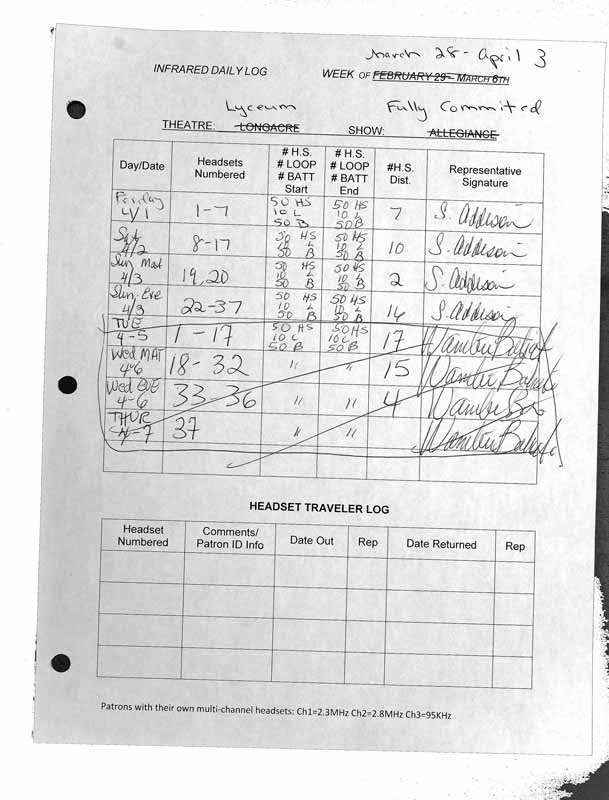 March 28 - April 3
INFRARED DAILY LOG WEEK OF FEBRUARY 29 - MARCH 6TH
Lyceum Fully Commited
THEATRE: LONGACRE SHOW: ALLEGIANCE
Day/Date Headsets Numbered # H.S. # LOOP # BATT Start # H.S. # LOOP # BATT End #H.S. Dist. Representative Signature
Friday 4/1 1-7 50 HS 10 L 50 B 50 HS 10 L 50 B 7 S. Addison
Sat 4/2 8-17 50 HS 10 L 50 B 50 HS 10 L 50 B 10 S. Addison
Sun Mat 4/3 19,20 50 HS 10 L 50 B 50 HS 10 L 50 B 2 S. Addison
Sun Eve 4/3 22-37 50 HS 10 L 50 B 50 HS 10 L 50 B 16 S. Addison
TUE 4-5 1-17 50 HS 10 L 50 B 50 HS 10 L 50 B 17
Wed MAT 4-6 18-32 " " 15
Wed EVE 4-6 33-36 " " 4
THUR 4-7 37 " "
HEADSET TRAVELER LOG
Headset Numbered Comments/ Patron ID Info Date Out Rep Date Returned Rep
Patrons with their own multi-channel headsets: Ch1=2.3MHz Ch2=2.8MHz Ch3=95KHz